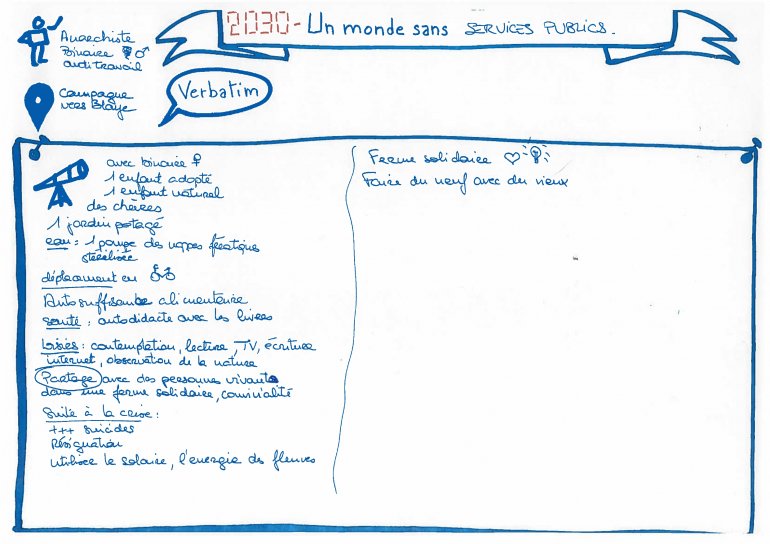 2030 - Un monde sans SERVICES PUBLICS.
Anarchiste
Binaire ♀ ♂
antitravail
Campagne
vers Blaye
Verbatim
avec binaire ♀
1 enfant adopté
1 enfant naturel
des chèvres
1 jardin potagé
eau : 1 pompe des nappes fréatiques
stérilisée
déplacement en
Autosuffisance alimentaire
santé : autodidacte avec les livres
Loisirs : contemplation, lecture, TV, écriture
internet, observation de la nature
Partage avec des personnes vivants
dans une ferme solidaire, convivialité
Suite à la crise :
+++ suicides
Résignation
utilise le solaire, l'energie des fleuves
Ferme solidaire
Faire du neuf avec du vieux